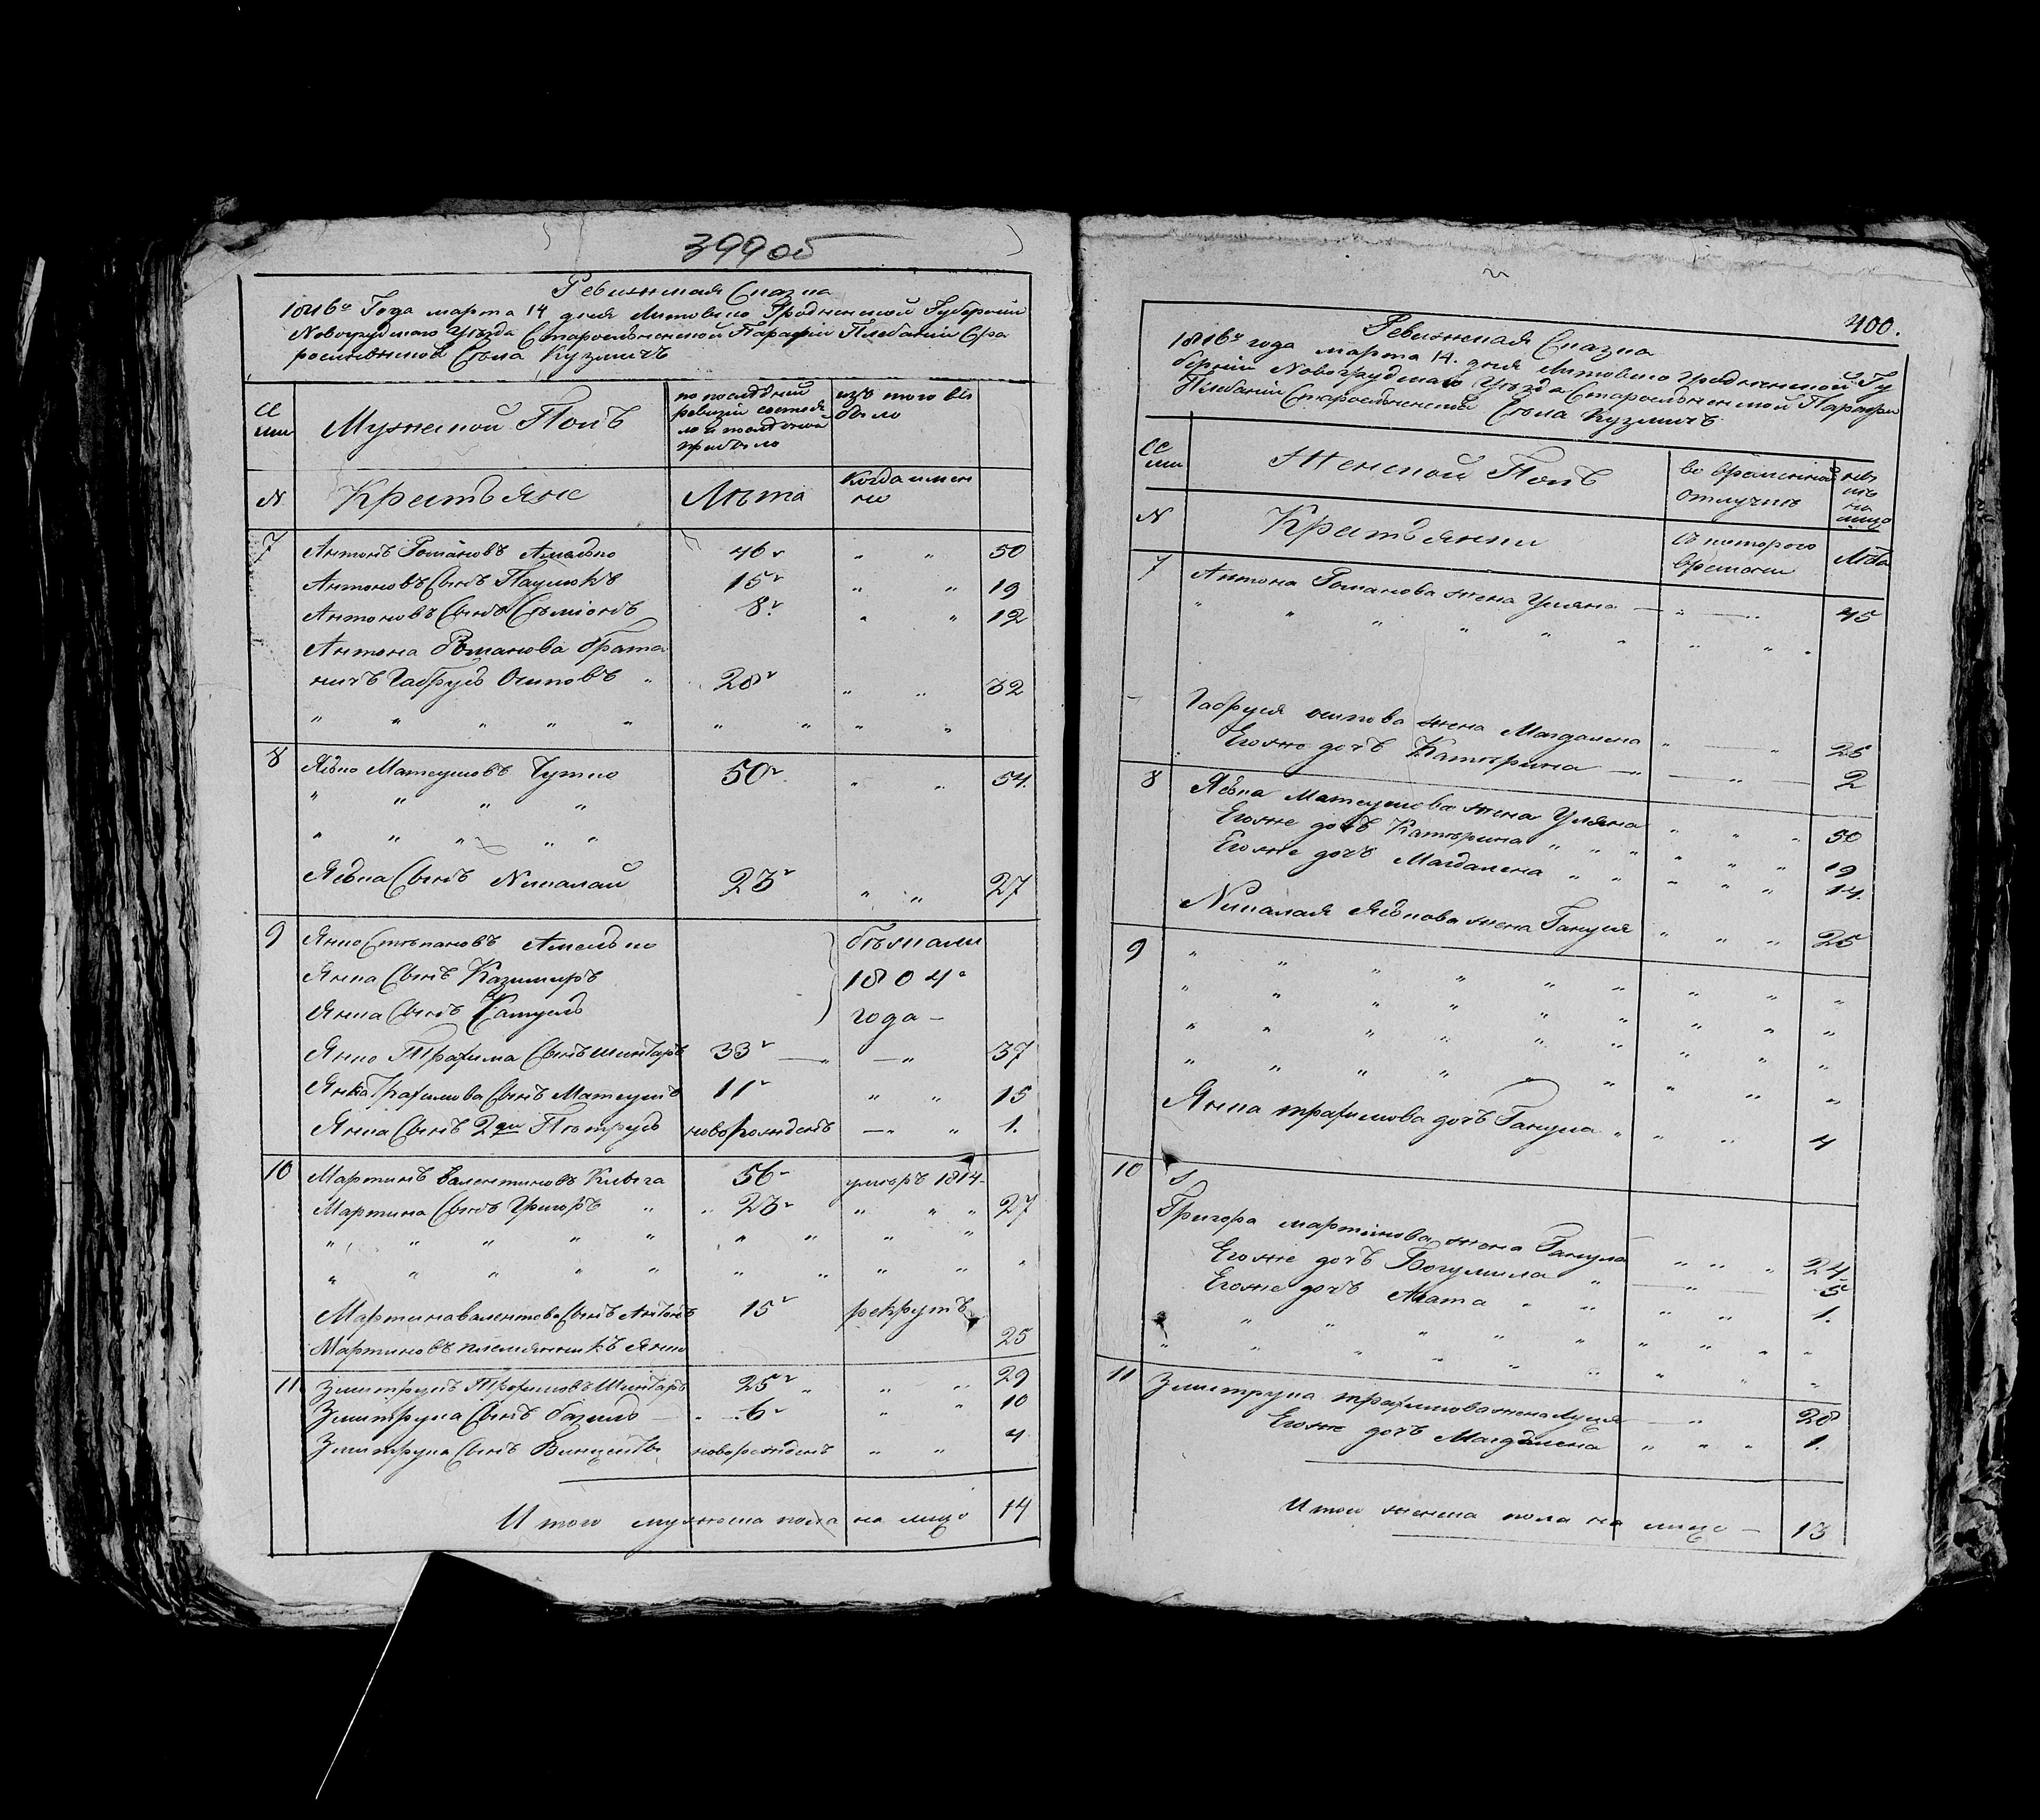 399 об
Ревизская Сказка
1816го Года марта 14 дня Литовско Гродненской Губернии
Новогрудского Уезда Староельненской Парафии Плебании Ста
роельненской Села Кузмичъ
Мужеской Полъ
по последней
ревизии состоя
ло и последне
прибыло
изъ того вы
было
N
Крестьяне
Лѣта
Когда имен
но
7
Антонъ Романовъ Амелько 46 " " 50
Антоновъ Сынъ Паулюкъ 15 " " 19
Антоновъ Сынъ Сѣмionъ 8 " " 12
Антона Романова брата
ничъ Габрусь Осиповъ " 28 " " 32
" " " " " " " " "
8 Ясько Матеушовъ Чутко 50 " " 54.
" " " "
" " " " "
Яська Сынъ Николай 23 " " 27
9 Янко Стѣпановъ Амелько бѣжали
Янка Сынъ Казимиръ 1804
Янка Сынъ Самусь года –
Янко Трахима Сынъ Шинкаръ 33 — — " 37
Янка Трахимова Сынъ Матеушъ 11 " " 15
Янка Сынъ 2й Пѣтрусь новорожденъ — " " 1.
10 Мартинъ Валентиновъ 56 умѣръ 1814
Мартина Сынъ Григоръ " " 23 " " " 27
" " " " " " " " "
" " " " " " " " " "
Мартина Валентова Сынъ Антонъ 15 рекрутъ
Мартиновъ племянникъ Янко 25
11 Змитрукъ Трохимовъ Шинкаръ 25 " " " 29
Змитрука Сынъ базыль — 6 " " 10
Змитрука Сынъ Винцентъ новорожденъ " " 4
Итого мужеска пола на лицо 14
400.
Ревизская Сказка
1816го года марта 14. дня Литовско Гродненской Гу
бернии Новогрудского Уезда Староельненской Парафи
Плебании Староельненской Села Кузмичъ
Женской Полъ
во временной
отлучкѣ
нынѣ
на
лицо
N
Крестьянки
Съ которого
времени
Лѣта
7 Антона Романова жена Уляна — " — " 45
" " " " " " " " "
Габруся осипова жена Магдалена " — " 25
Его же дочь Катерина — " — " — 2
8 Яська Матеушова жена Уляна " " " 50
Его же дочь Катерина " " " " " " 19
Его же дочь Магдалена " " " " " 14.
Николая Яськова жена Гануля " " " 25
9 " " " " " " " " "
" " " " " " " " "
" " " " " " " " "
" " " " " " " " "
Янка трахимова дочь Ганула " " " 4
10
Григора мартинова жена Ганула " " " 24
Его же дочь Богумила " — " — 5
Его же дочь Агата " " " " 1.
" " " " " " " " " "
" " " " " " " " "
11 Змитрука трахимова жена Луция — " 28
Его же дочь Магдалена " " " 1.
Итого женска пола на лицо — 13